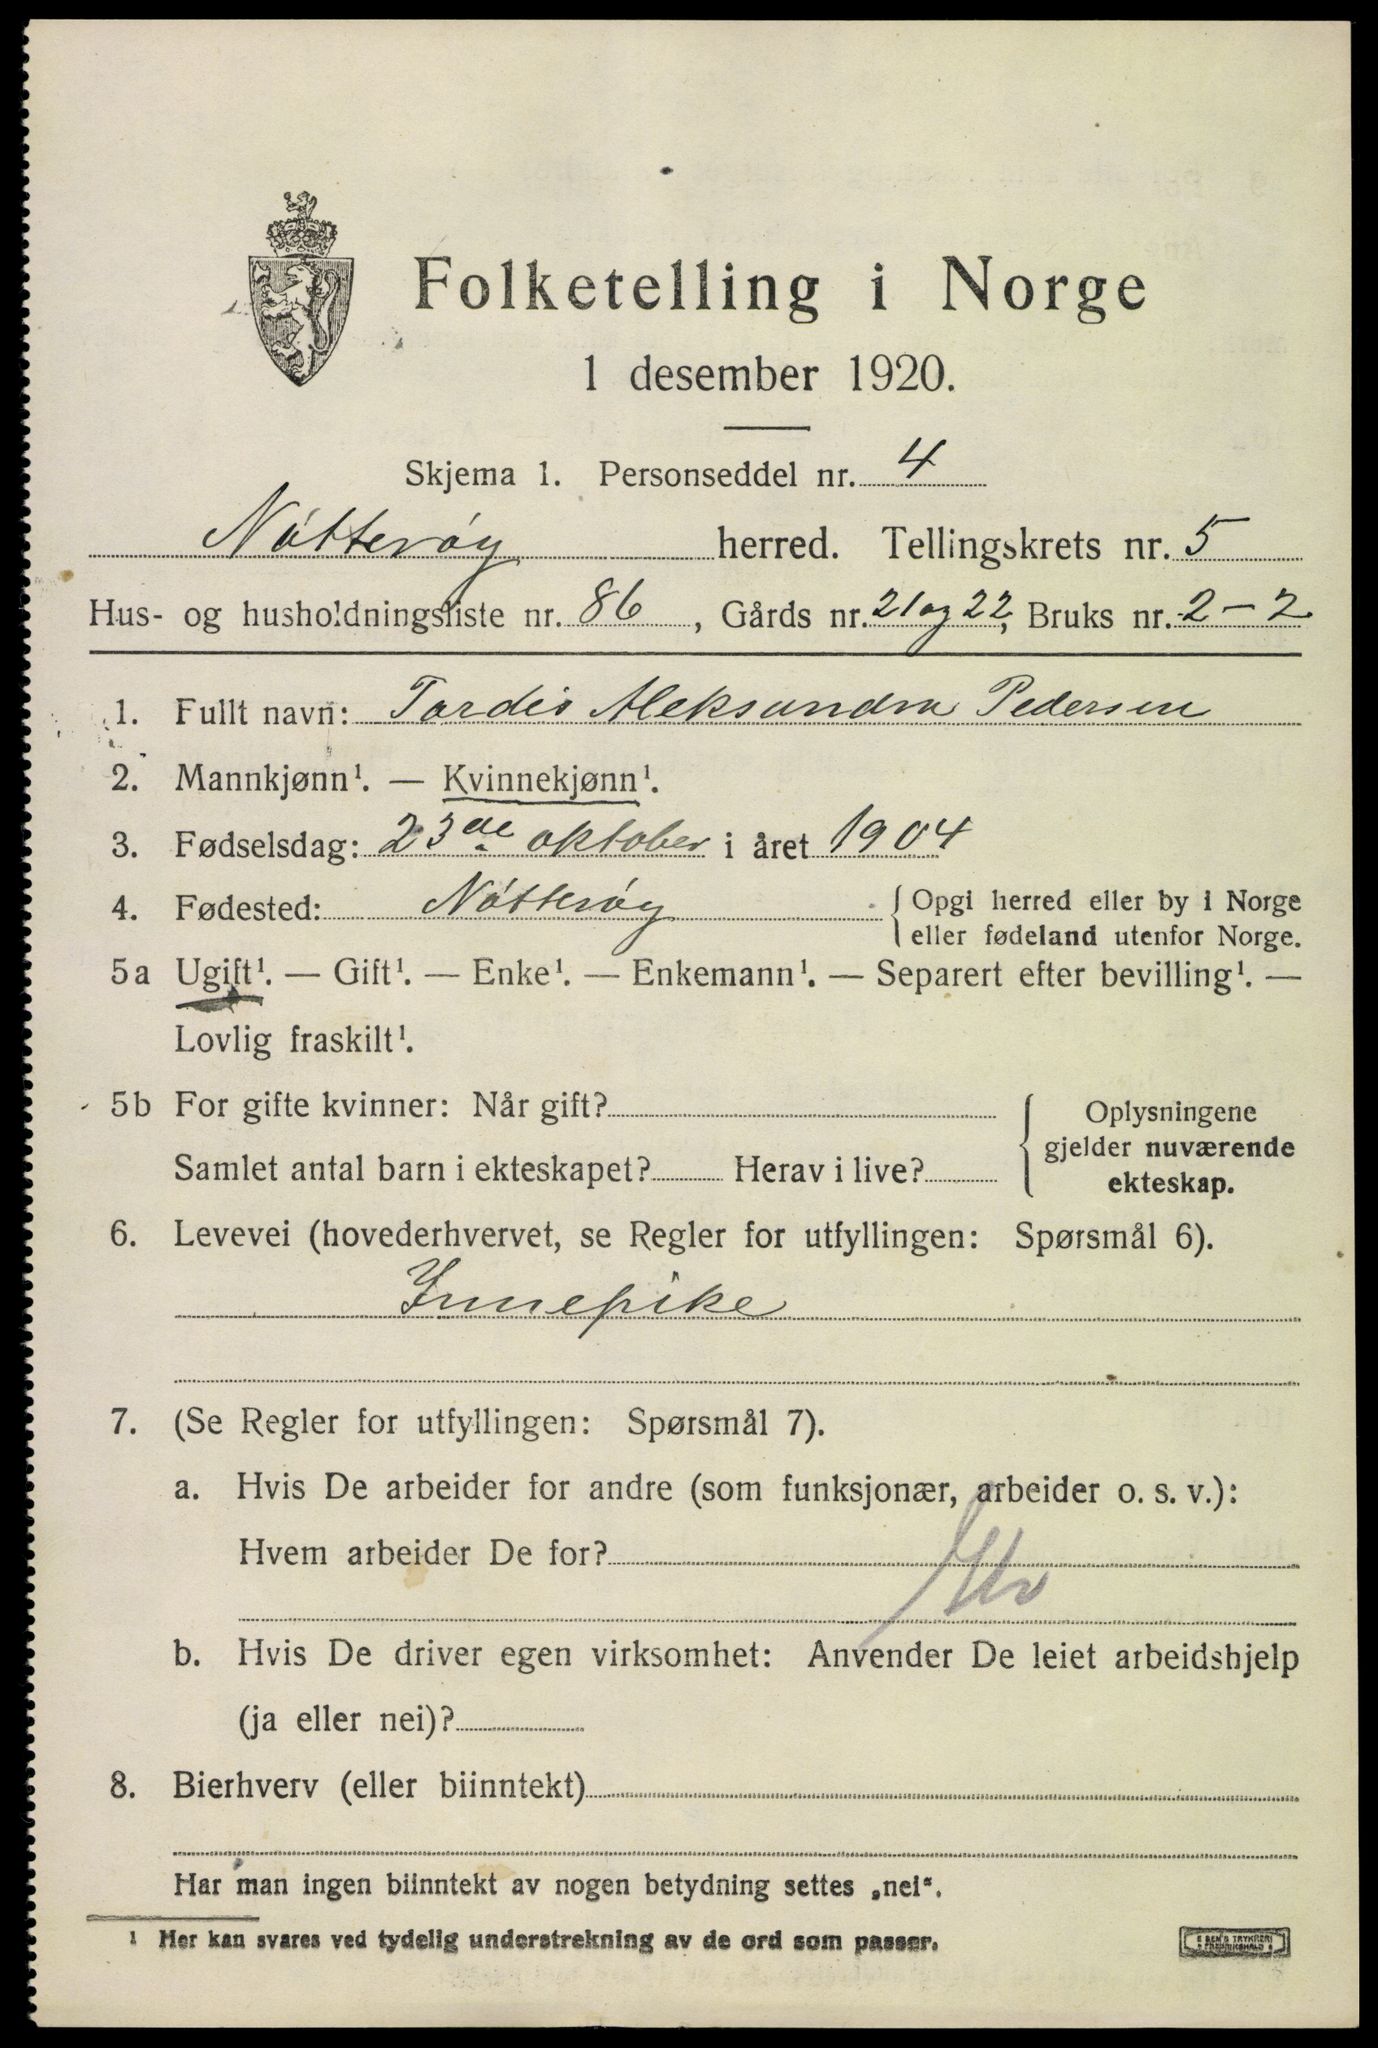 Folketelling i Norge
1 desember 1920.
Skjema 1. Personseddel nr. 4
Nötteröy herred. Tellingskrets nr. 5
Hus- og husholdningsliste nr. 86, Gårds nr. 21 og 22, Bruks nr. 2-2
1. Fullt navn: Tordis Aleksandra Pedersen
2. Mannkjønn¹. — Kvinnekjønn¹.
3. Fødselsdag: 23de oktober i året 1904
4. Fødested: Nötteröy { Opgi herred eller by i Norge
eller fødeland utenfor Norge.
5a Ugift¹. — Gift¹. — Enke¹. — Enkemann¹. — Separert efter bevilling¹. —
Lovlig fraskilt¹.
5b For gifte kvinner: Når gift?
Samlet antal barn i ekteskapet? Herav i live?
{ Oplysningene
gjelder nuværende
ekteskap.
6. Levevei (hovederhvervet, se Regler for utfyllingen: Spørsmål 6).
Innepike
7. (Se Regler for utfyllingen: Spørsmål 7).
a. Hvis De arbeider for andre (som funksjonær, arbeider o. s. v.):
Hvem arbeider De for?
b. Hvis De driver egen virksomhet: Anvender De leiet arbeidshjelp
(ja eller nei)?
8. Bierhverv (eller biinntekt)
Har man ingen biinntekt av nogen betydning settes „nei“.
1 Her kan svares ved tydelig understrekning av de ord som passer.